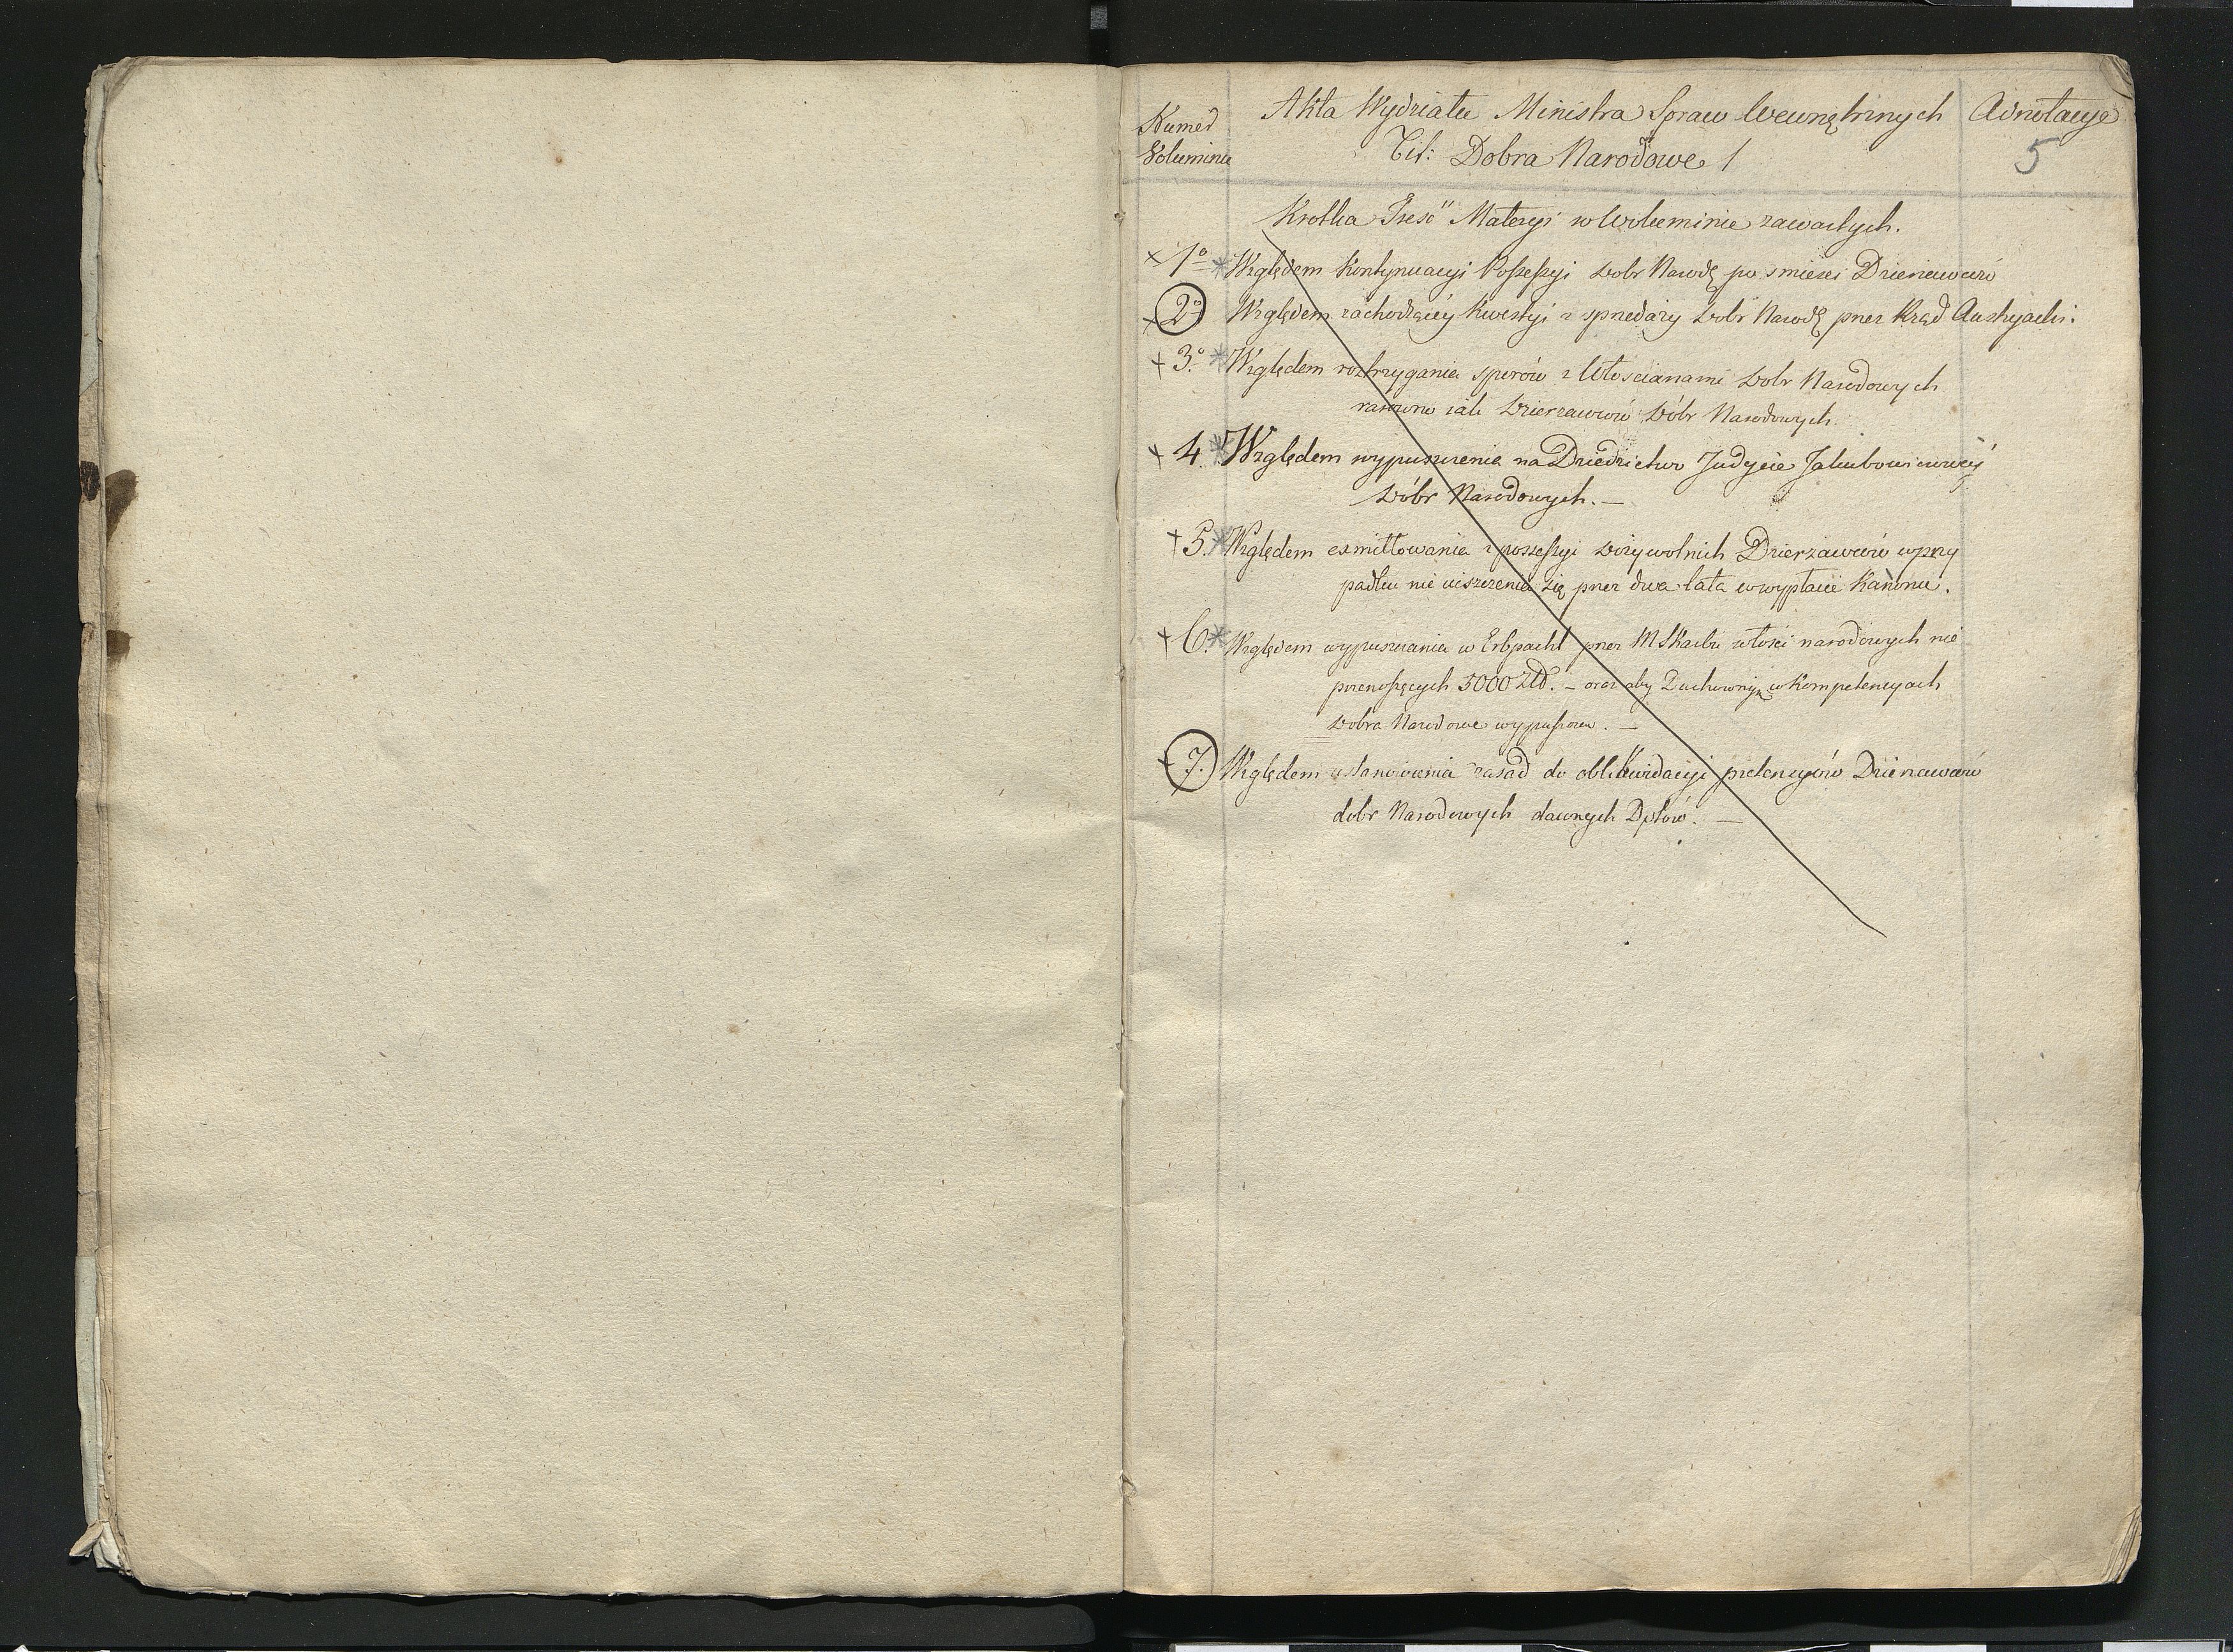 Numer
Volumina
Akta Wydziału Ministra Spraw Wewnętrznych
Tit: Dobra Narodowe 1
Adnotacye
5
Krotka Treść Materyi w Woluminie zawartych.
+ 1º * Względem Kontynuacyi Possessyi Dobr Narod: po śmierci Dzierżawców
+ 2º Względem zachodzącey kwestyi z sprzedaży Dobr Narod: przez Rząd Austryacki.
+ 3º * Względem rozstrzygania sporów z Włoscianami Dobr Narodowych
zarówno iak Dzierzawców Dóbr Narodowych.
+ 4. * Względem wypuszczenia na Dziedzictwo Judycie Jakubowiczowéy
Dóbr Narodowych. —
+ 5. * Względem exmittowania z possessyi dożywotnich Dzierżawców w przy
padku nie uiszczenia się przez dwa lata w wypłacie Kanonu.
+ 6. * Względem wypuszczania w Erbpacht przez M Skarbu włości narodowych nie
przenoszących 5000 Złł. — oraz aby Duchownym w Kompetencyach
Dobra Narodowe wypuszczac. —
+ 7. Względem ustanowienia zasad do oblikwidacyi pretensyów Dzierzawców
dobr Narodowych dawnych Dpttów. —